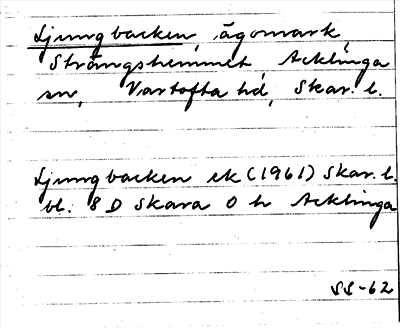 Ljungbacken, ägomark,
Strängshemmet Acklinga
sn, Vartofta hd, Skar. l.
Ljungbacken ek (1961) Skar. l.
bl. 8 D Skara O h Acklinga
SS-62